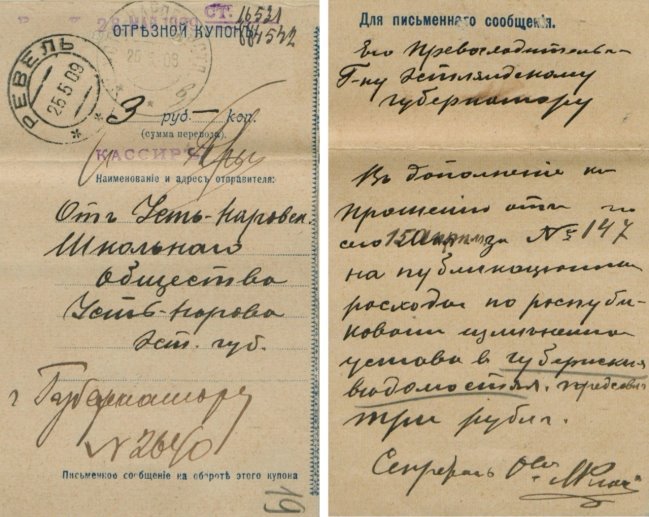 СТ. 16521
28 МАЙ 1909
664542
ОТРѢЗНОЙ КУПОНЪ
РЕВЕЛЬ
25 5 09
25 5 09
3 руб. — коп.
(сумма перевода).
КАССИРЪ
Наименованіе и адресъ отправителя:
Отъ Усть-Наровск.
Школьнаго
Общества
Усть-Нарова
Эст. губ.
Губернатору
N 2640
Письменное сообщеніе на оборотѣ этого купона
19
Для письменнаго сообщенія.
Его Превосходительству
Г-ну Эстляндскому
губернатору
Въ дополненіе къ
прошенію отъ
сего 15 Апрѣля за № 147
на публикаціонные
расходы по
устава в губернскія
вѣдомостях.
три рубля.
Секретарь